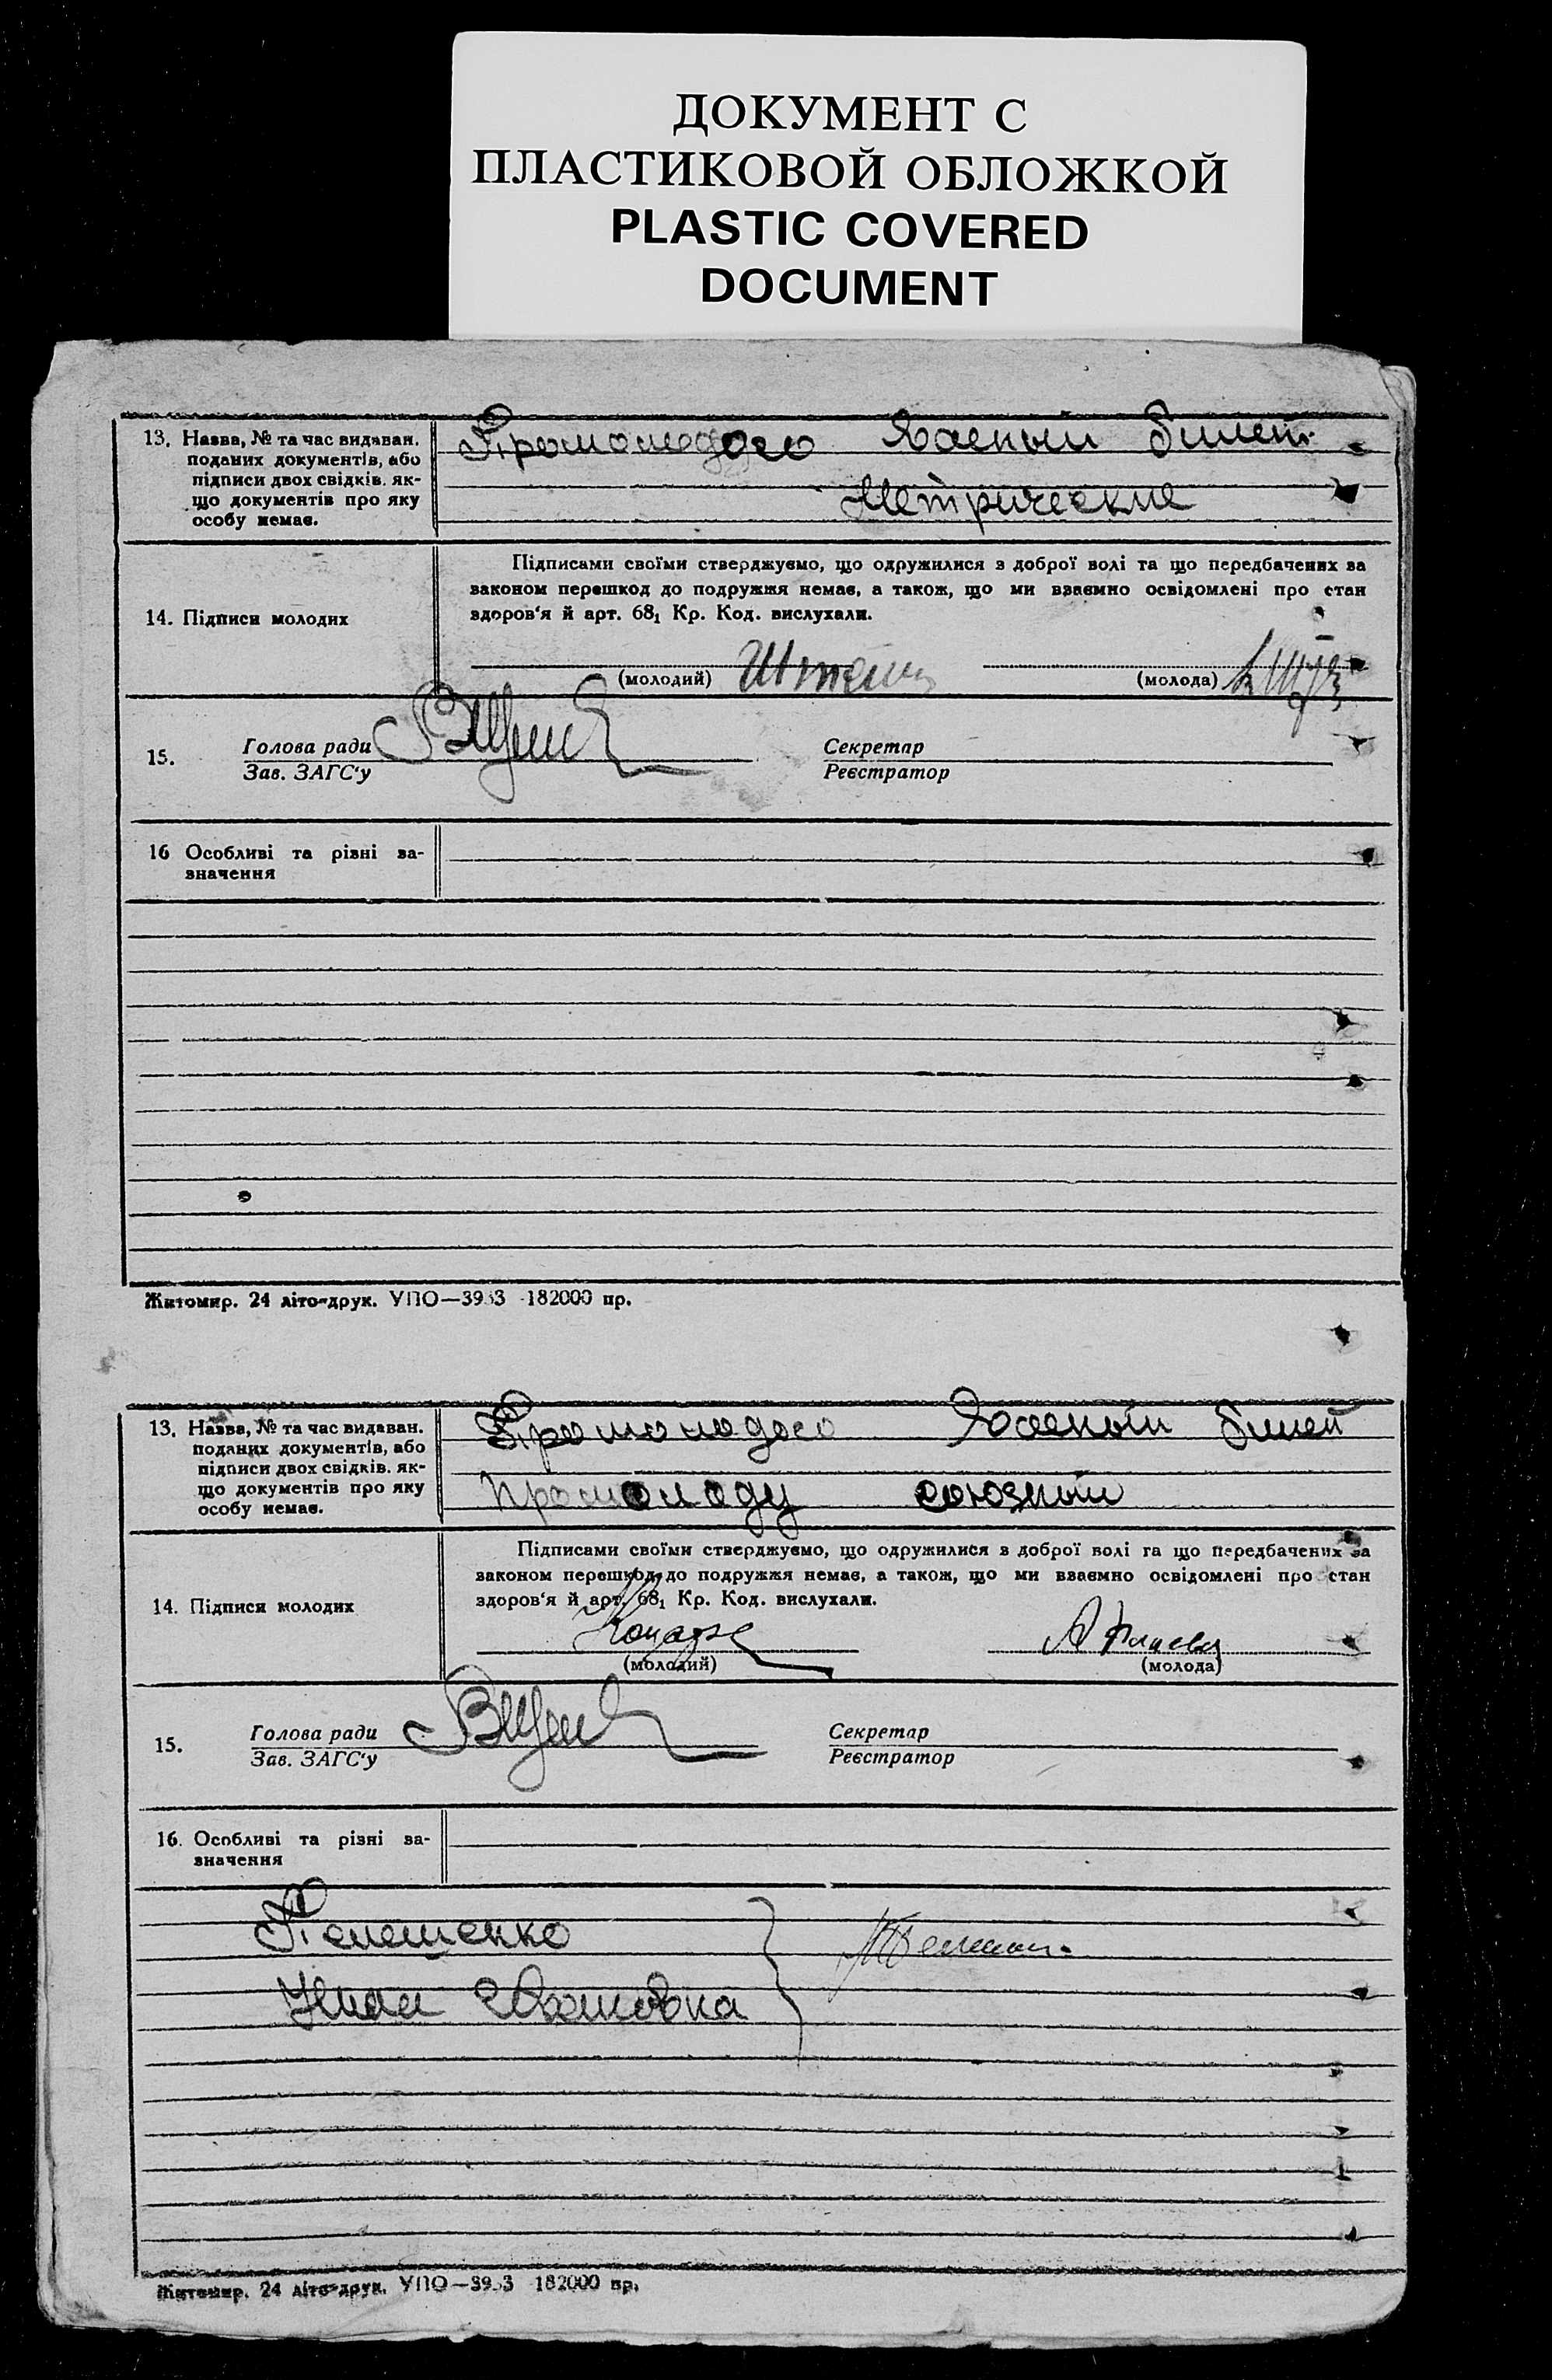 ДОКУМЕНТ С
ПЛАСТИКОВОЙ ОБЛОЖКОЙ
PLASTIC COVERED
DOCUMENT
13. Назва, № та час видаван.
поданих документів, або
підписи двох свідків, як-
що документів про яку
особу немає.
Про молодого Воєный билет
Метрические
Підписами своїми стверджуємо, що одружилися з доброї волі та що передбачених за
законом перешкод до подружжя немає, а також, що ми взаємно освідомлені про стан
здоров'я й арт. 68₁ Кр. Код. вислухали.
14. Підписи молодих
(молодий) (молода)
15. Голова ради Секретар
Зав. ЗАГС'у Реєстратор
16 Особливі та різні за-
значення
Житомир. 24 літо-друк. УПО—3933 182000 пр.
13. Назва, № та час видаван.
поданих документів, або
підписи двох свідків, як-
що документів про яку
особу немає.
Про молодого Воєный билет
Про молоду союзный
Підписами своїми стверджуємо, що одружилися з доброї волі та що передбачених за
законом перешкод до подружжя немає, а також, що ми взаємно освідомлені про стан
здоров'я й арт. 68₁ Кр. Код. вислухали.
14. Підписи молодих
(молодий) (молода)
15. Голова ради Секретар
Зав. ЗАГС'у Реєстратор
16. Особливі та різні за-
значення
Житомир. 24 літо-друк. УПО—3933 182000 пр.